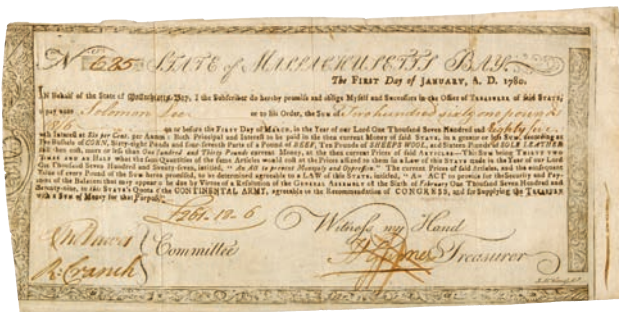 No 685 STATE of MASSACHUSETTS BAY.
The FIRST Day of JANUARY, A. D. 1780.
IN Behalf of the State of Massachusetts-Bay, I the Subscriber do hereby promise and oblige Myself and Successors in the Office of TREASURER of said STATE,
to pay unto Solomon Lee or to his Order, the SUM of Two hundred sixty one pounds
12/6 on or before the FIRST Day of MARCH, in the Year of our Lord One Thousand Seven Hundred and Eighty five
with Interest at Six per Cent. per Annum: Both Principal and Interest to be paid in the then current Money of said STATE, in a greater or less SUM, according as
Five Bushels of CORN, Sixty-eight Pounds and four-seventh Parts of a Pound of BEEF, Ten Pounds of SHEEPS WOOL, and Sixteen Pounds of SOLE LEATHER
shall then cost, more or less than One Hundred and Thirty Pounds current Money, at the then current Prices of said ARTICLES—This SUM being THIRTY-TWO
TIMES and an HALF what the same Quantities of the same Articles would cost at the Prices affixed to them in a LAW of this STATE made in the Year of our Lord
One Thousand Seven Hundred and Seventy-seven, intitled, "An Act to prevent Monopoly and Oppression." The current Prices of said Articles, and the consequent
Value of every Pound of the SUM herein promised, to be determined agreeable to a LAW of this STATE, intitled, "An ACT to provide for the Security and Payment
of the Balances that may appear to be due by Virtue of a Resolution of the GENERAL ASSEMBLY of the Sixth of February One Thousand Seven Hundred and
Seventy-nine, to this STATE's Quota of the CONTINENTAL ARMY, agreeable to the Recommendation of CONGRESS, and for Supplying the TREASURY
with a SUM of Money for that Purpose."
£261-12-6
Witness my Hand
Committee
R: Cranch
Treasurer